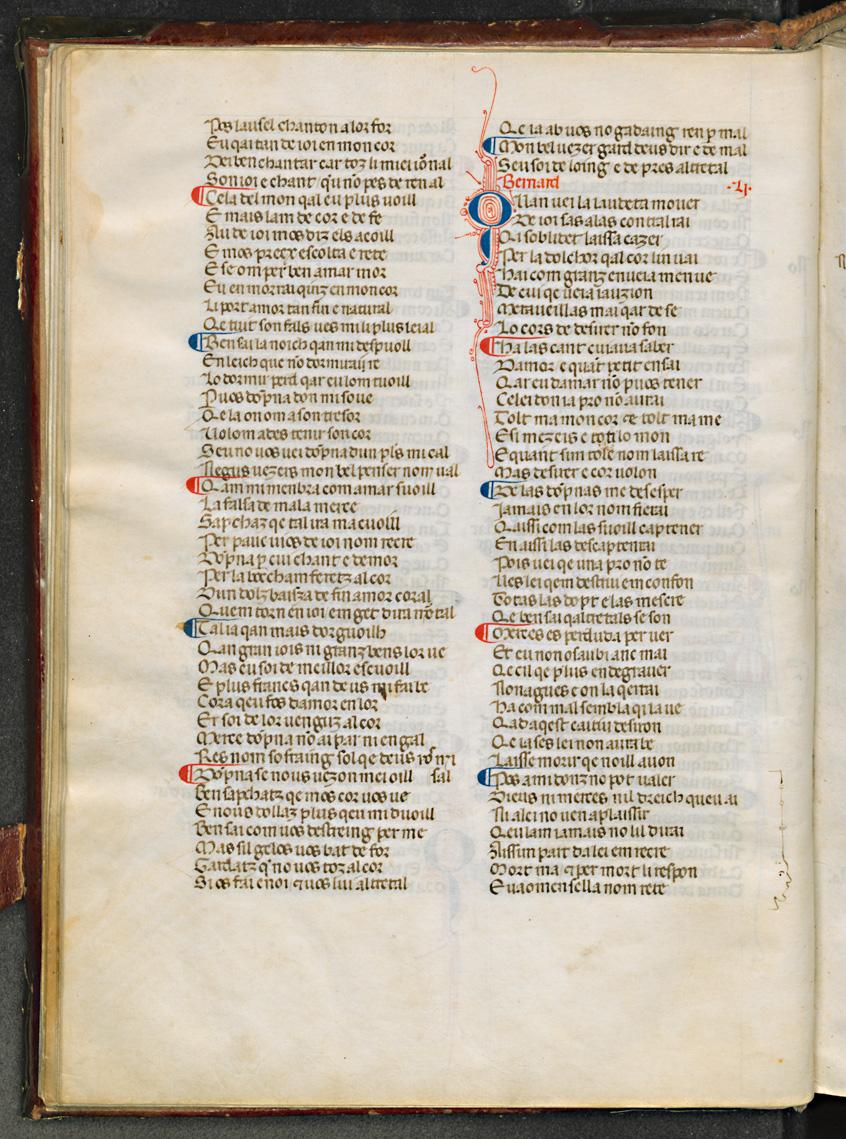 Pos lausel chanton a lor for
Eu qai tan de ioi en mon cor
Dei ben chantar car toz li miei iōnal
Son ioi e chant qu nō pes de ren al
Cela del mon qal eu plus uoill
E mais lam de cor e de fe
Au de ioi mos diz els acoill
E mos precx escolta e rete
E se om per ben amar mor
Eu en morrai qinz en mon cor
Li port amor tan fin e natural
Qe tuit son fals ues mi li plus leial
Ben sai la noich qan mi despuoll
En leich que nō dormirai re
Lo dormir perd qar eu lom tuoill
Puos dōpna don mi soue
Qe la on om a son tresor
Uol om ades tenir son cor
Seu no uos uei dōpna dun pls mi cal
Negus uezers mon bel penser nom ual
Qam mi menbra com amar suoill
La falsa de mala merce
Sapchaz qe tal ira ma cuoill
Per pauc uios de ioi nom recre
Dōpna p cui chant e demor
Per la bocham feretz al cor
Dun dolz baisza de fin amor coral
Quem torn en ioi em get dira mōtal
Tal ia qan mais dorguoilh
Qan gran iois ni granz bens lor ue
Mas eu soi de meillor escuoill
E plus francs qan deus mi fai be
Cora qeu fos damor en lor
Er soi de lor uenguz al cor
Merce dōpna nō ai par ni engal
Res nom sofraing sol qe deus uō
sal
Dōpna se nous uezon mei oill
Ben sapchatz qe mos cor uos ue
E nous dollaz plus qeu mi duoill
Ben sai com uos destreing per me
Mas sil gelos uos bat de for
Gardatz q no uos toz al cor
Si os fai enoi e uos lui altretal
Qe ia ab uos no gadaing ren p mal
Mon bel uezer gard deus dir e de mal
Seu soi de loing e de pres altretal
Bernard
Qan uei la laudeta mouer
De ioi sas alas contral rai
Qi soblider laissa cazer
Per la dolchor qal cor lin uai
Hai com granz enueia men ue
De cui qe ueia iauzion
Meraueillas mai qar de se
Lo cors de desirer nō fon
Ha las cant cuiaua saber
Damor e quāt petit en sai
Qar eu damar nō puos tener
Celei don ia pro nō aurai
Tolt ma mon cor e tolt ma me
E si mezeis e tot lo mon
E quant sim tole nom laissa re
Mas desirer e cor uolon
De las dōpnas me desesper
Jamais en lor nom fierai
Qaissi com las suoill captener
En aissi las descaptenrai
Pois uei qe una pro nō te
Ues lei qem destrui em confon
Totas las dopt e las mescre
Qe ben sai qaltretals se son
Merces es perduda per uer
Et eu non o saubi anc mai
Qe cil qe plus en degrauer
Non a gues e on la qerrai
Ha com mal sembla qi la ue
Qad aqest caitiu desiron
Qe ia ses lei non aura be
Laisse morir qe noill auon
Pos a midonz no pot ualer
Dieus ni merces nil dreich queu ai
Ni a lei no uen a plaissir
Qeu lam iamais no lil dirai
Aissim part da lei em recre
Mort ma e per mort li respon
E uaomen sella nom rete